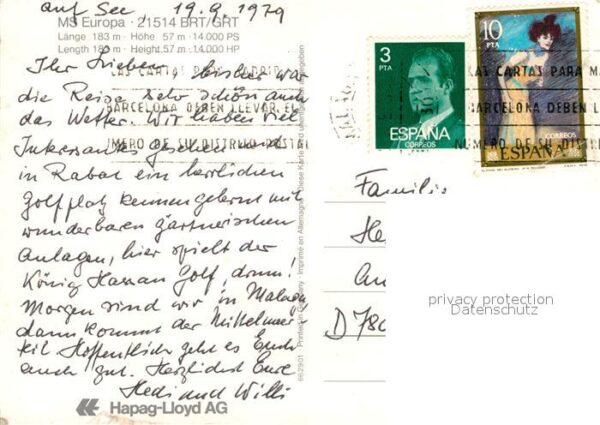 auf See, 19.9.1979
MS Europa · 21514 BRT/GRT
Länge 183 m · Höhe 57 m · 14.000 PS
Length 183 m · Height 57 m · 14.000 HP
Ihr Lieben, bisher war
die Reise sehr schön auch
das Wetter. Wir haben viel
Interessantes gesehen und
in Rabat ein herrlichen
Golfplatz kennengelernt mit
wunderbaren gärtnerischen
Anlagen, hier spielt der
König Hassan Golf, drum!
Morgen sind wir in Malaga
dann kommt der Mittelmeer-
teil. Hoffentlich geht es Euch
auch gut. Herzlichst Eure
Hedi und Willi
Hapag-Lloyd AG
662901 · Printed in Germany · Imprimé en Allemagne
LAS CARTAS PARA MADRID
BARCELONA DEBEN LLEVAR EL
NUMERO DE SU DISTRITO POSTAL
3
PTA
ESPAÑA
CORREOS
10
PTA
CORREOS
ESPAÑA
LAS CARTAS PARA MA
BARCELONA DEBEN L
NUMERO DE SU DISTRI
Familie
He
An
D 780
privacy protection
Datenschutz